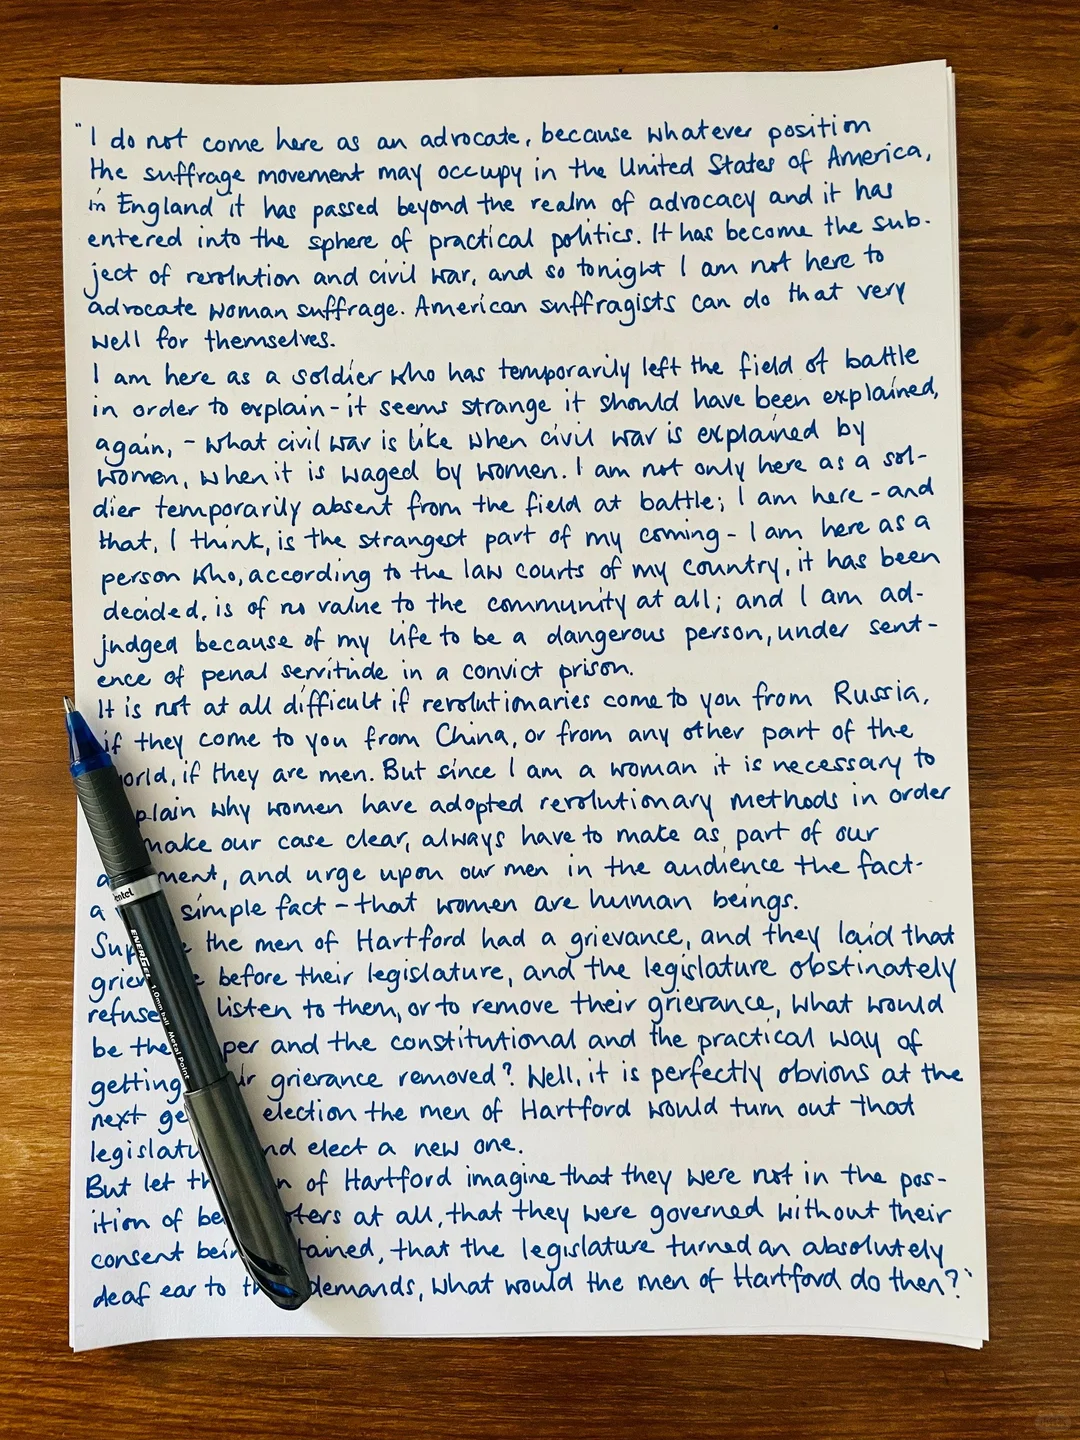 "I do not come here as an advocate, because whatever position
the suffrage movement may occupy in the United States of America,
in England it has passed beyond the realm of advocacy and it has
entered into the sphere of practical politics. It has become the sub-
ject of revolution and civil war, and so tonight I am not here to
advocate woman suffrage. American suffragists can do that very
well for themselves.
I am here as a soldier who has temporarily left the field of battle
in order to explain - it seems strange it should have been explained,
again, - what civil war is like when civil war is explained by
women, when it is waged by women. I am not only here as a sol-
dier temporarily absent from the field at battle; I am here - and
that, I think, is the strangest part of my coming - I am here as a
person who, according to the law courts of my country, it has been
decided, is of no value to the community at all; and I am ad-
judged because of my life to be a dangerous person, under sent-
ence of penal servitude in a convict prison.
It is not at all difficult if revolutionaries come to you from Russia,
if they come to you from China, or from any other part of the
world, if they are men. But since I am a woman it is necessary to
plain why women have adopted revolutionary methods in order
make our case clear, always have to make as part of our
a ment, and urge upon our men in the audience the fact-
a simple fact - that women are human beings.
Sup e the men of Hartford had a grievance, and they laid that
griev e before their legislature, and the legislature obstinately
refuse listen to them, or to remove their grievance, what would
be the per and the constitutional and the practical way of
getting ir grievance removed? Well, it is perfectly obvious at the
next ge election the men of Hartford would turn out that
legislatu nd elect a new one.
But let th n of Hartford imagine that they were not in the pos-
ition of be ters at all, that they were governed without their
consent bein tained, that the legislature turned an absolutely
deaf ear to th demands, what would the men of Hartford do then?"
Pentel
ENERGEL 1.0mm ball Metal Point